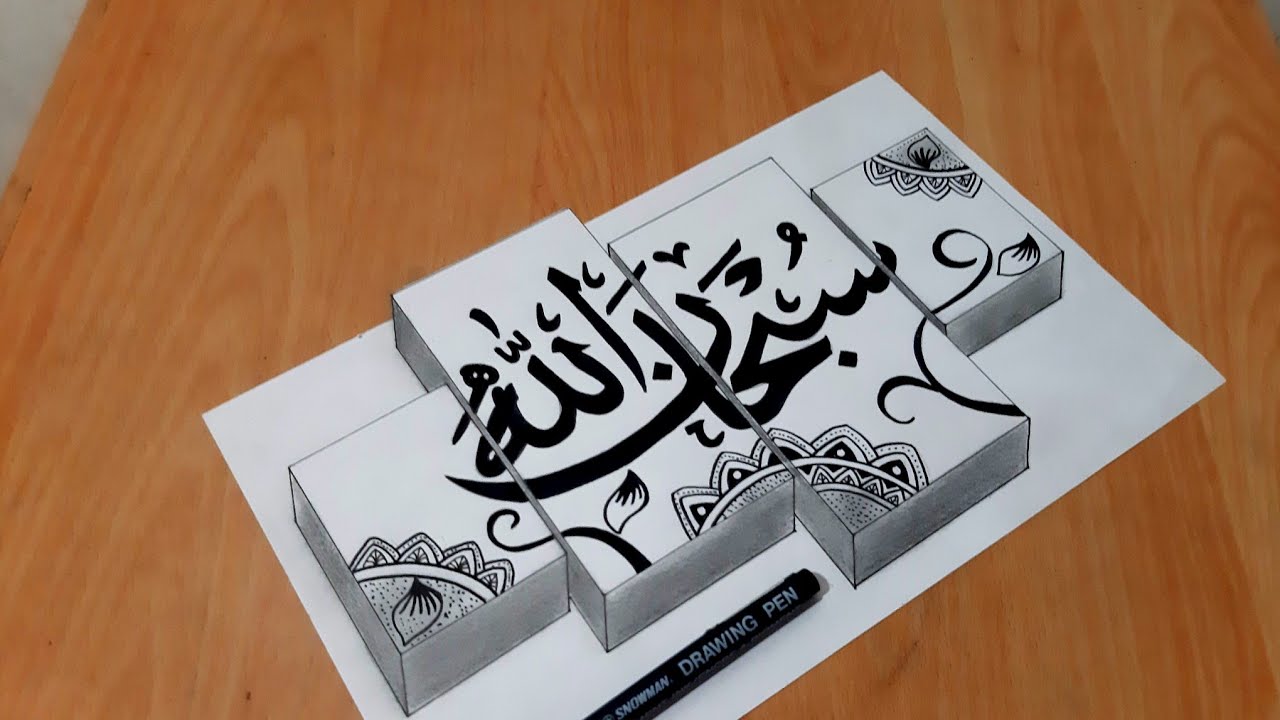 سُبْحَانَ اللّٰهُ
SNOWMAN. DRAWING PEN